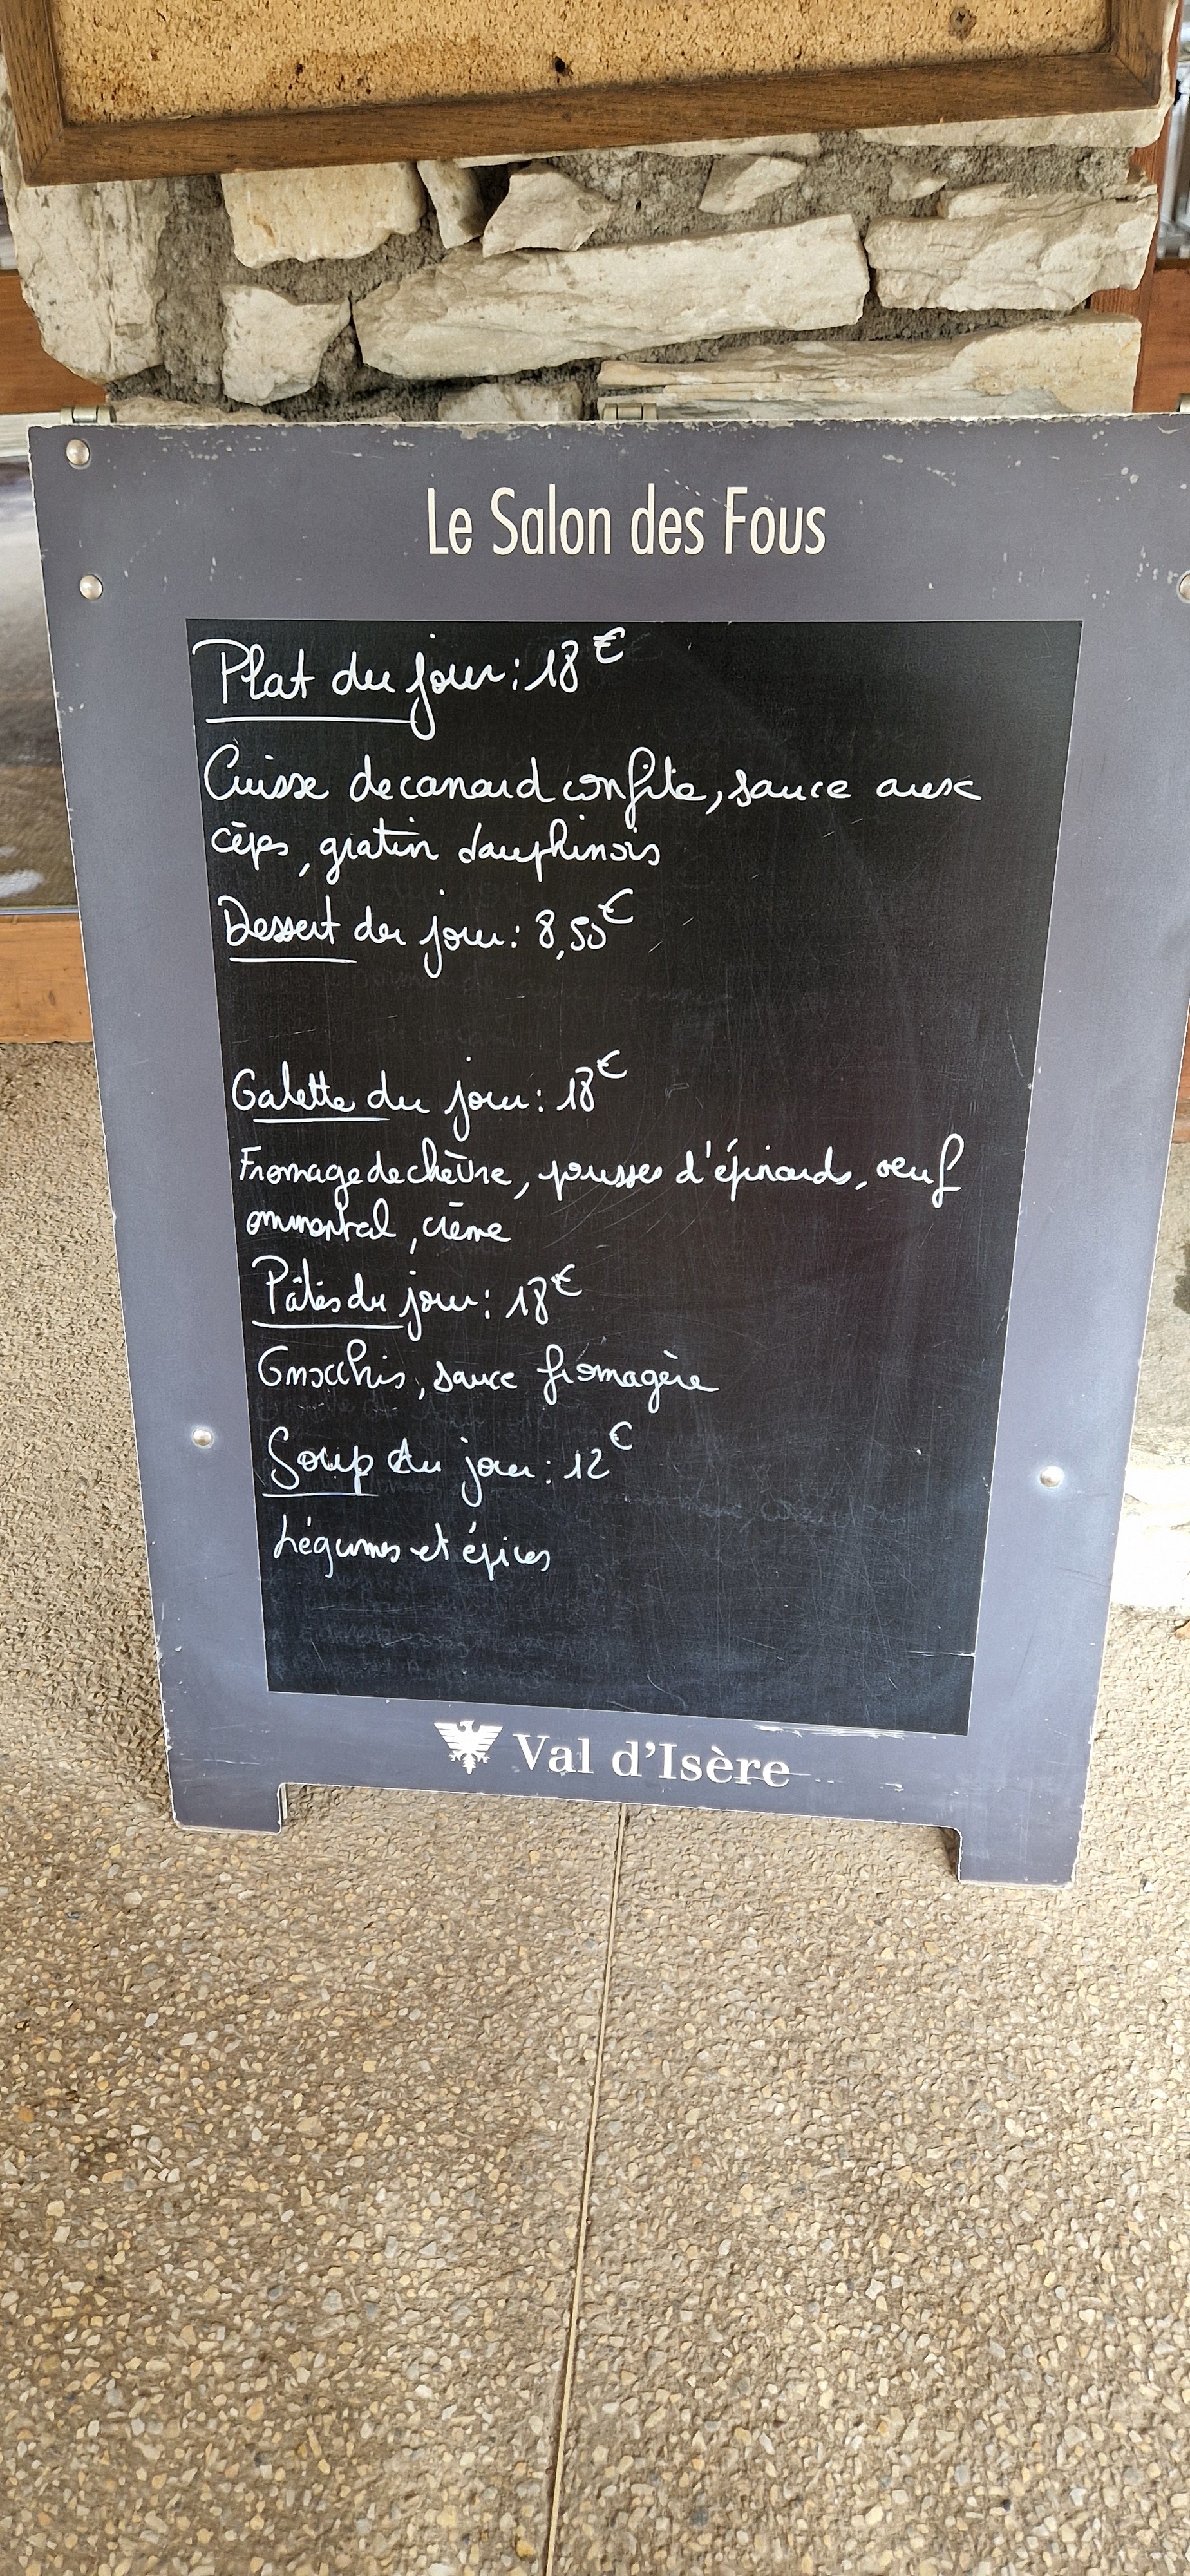 Le Salon des Fous
Plat du jour : 18€
Cuisse de canard confite, sauce aux
cèpes, gratin dauphinois
Dessert du jour : 8,50€
Galette du jour : 18€
Fromage de chèvre, pousses d'épinards, oeuf
emmental, crème
Pâtes du jour : 18€
Gnocchis, sauce fromagère
Soup du jour : 12€
Légumes et épices
Val d'Isère